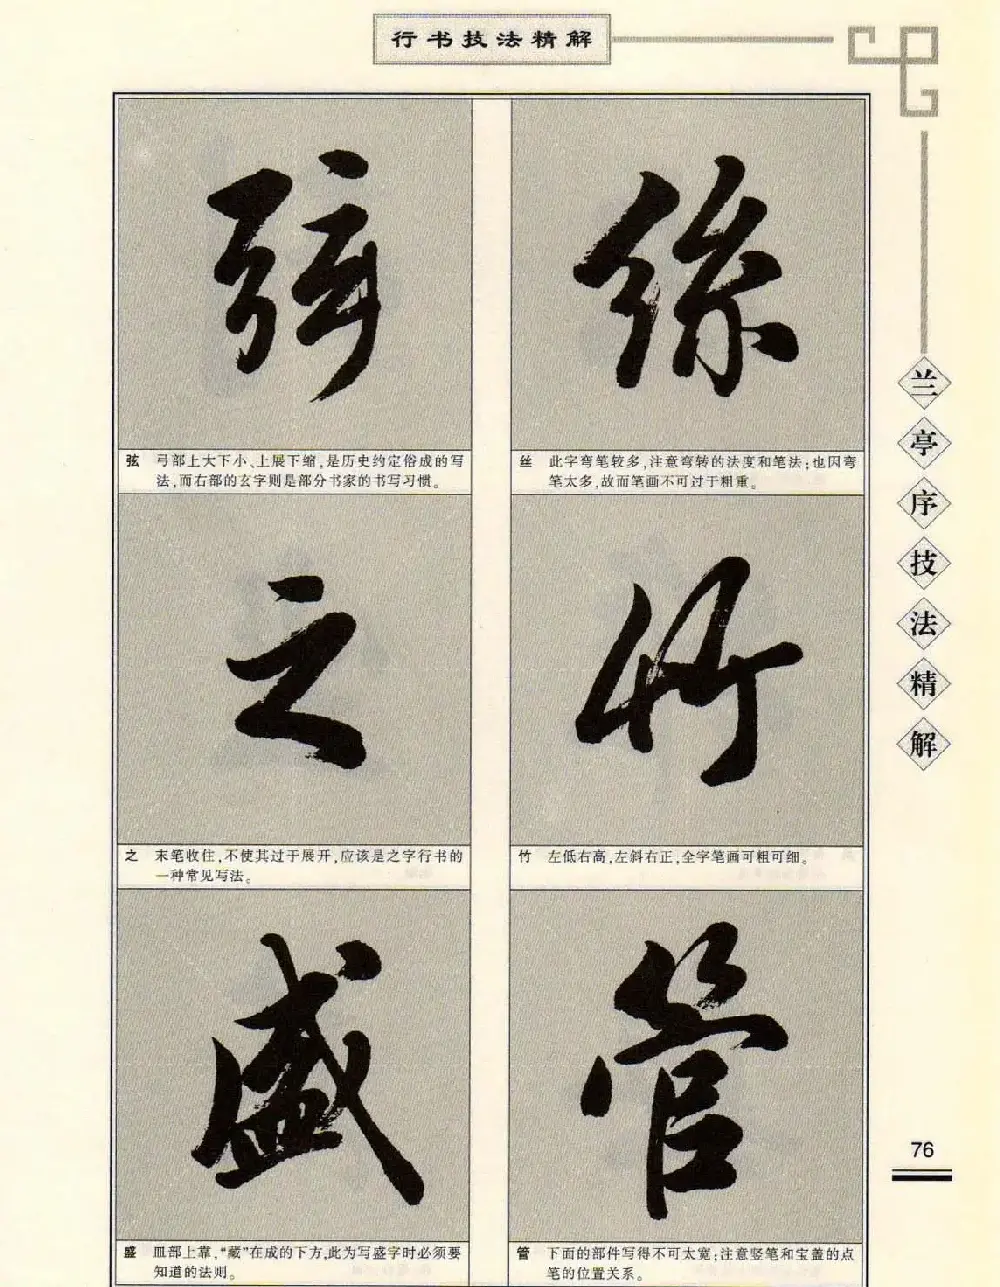 行书技法精解
絲
丝 此字弯笔较多,注意弯转的法度和笔法;也因弯
笔太多,故而笔画不可过于粗重。
竹
竹 左低右高,左斜右正,全字笔画可粗可细。
管
管 下面的部件写得不可太宽;注意竖笔和宝盖的点
笔的位置关系。
弦
弦 弓部上大下小、上展下缩,是历史约定俗成的写
法,而右部的玄字则是部分书家的书写习惯。
之
之 末笔收住,不使其过于展开,应该是之字行书的
一种常见写法。
盛
盛 皿部上靠、“藏”在成的下方,此为写盛字时必须要
知道的法则。
兰亭序技法精解
76